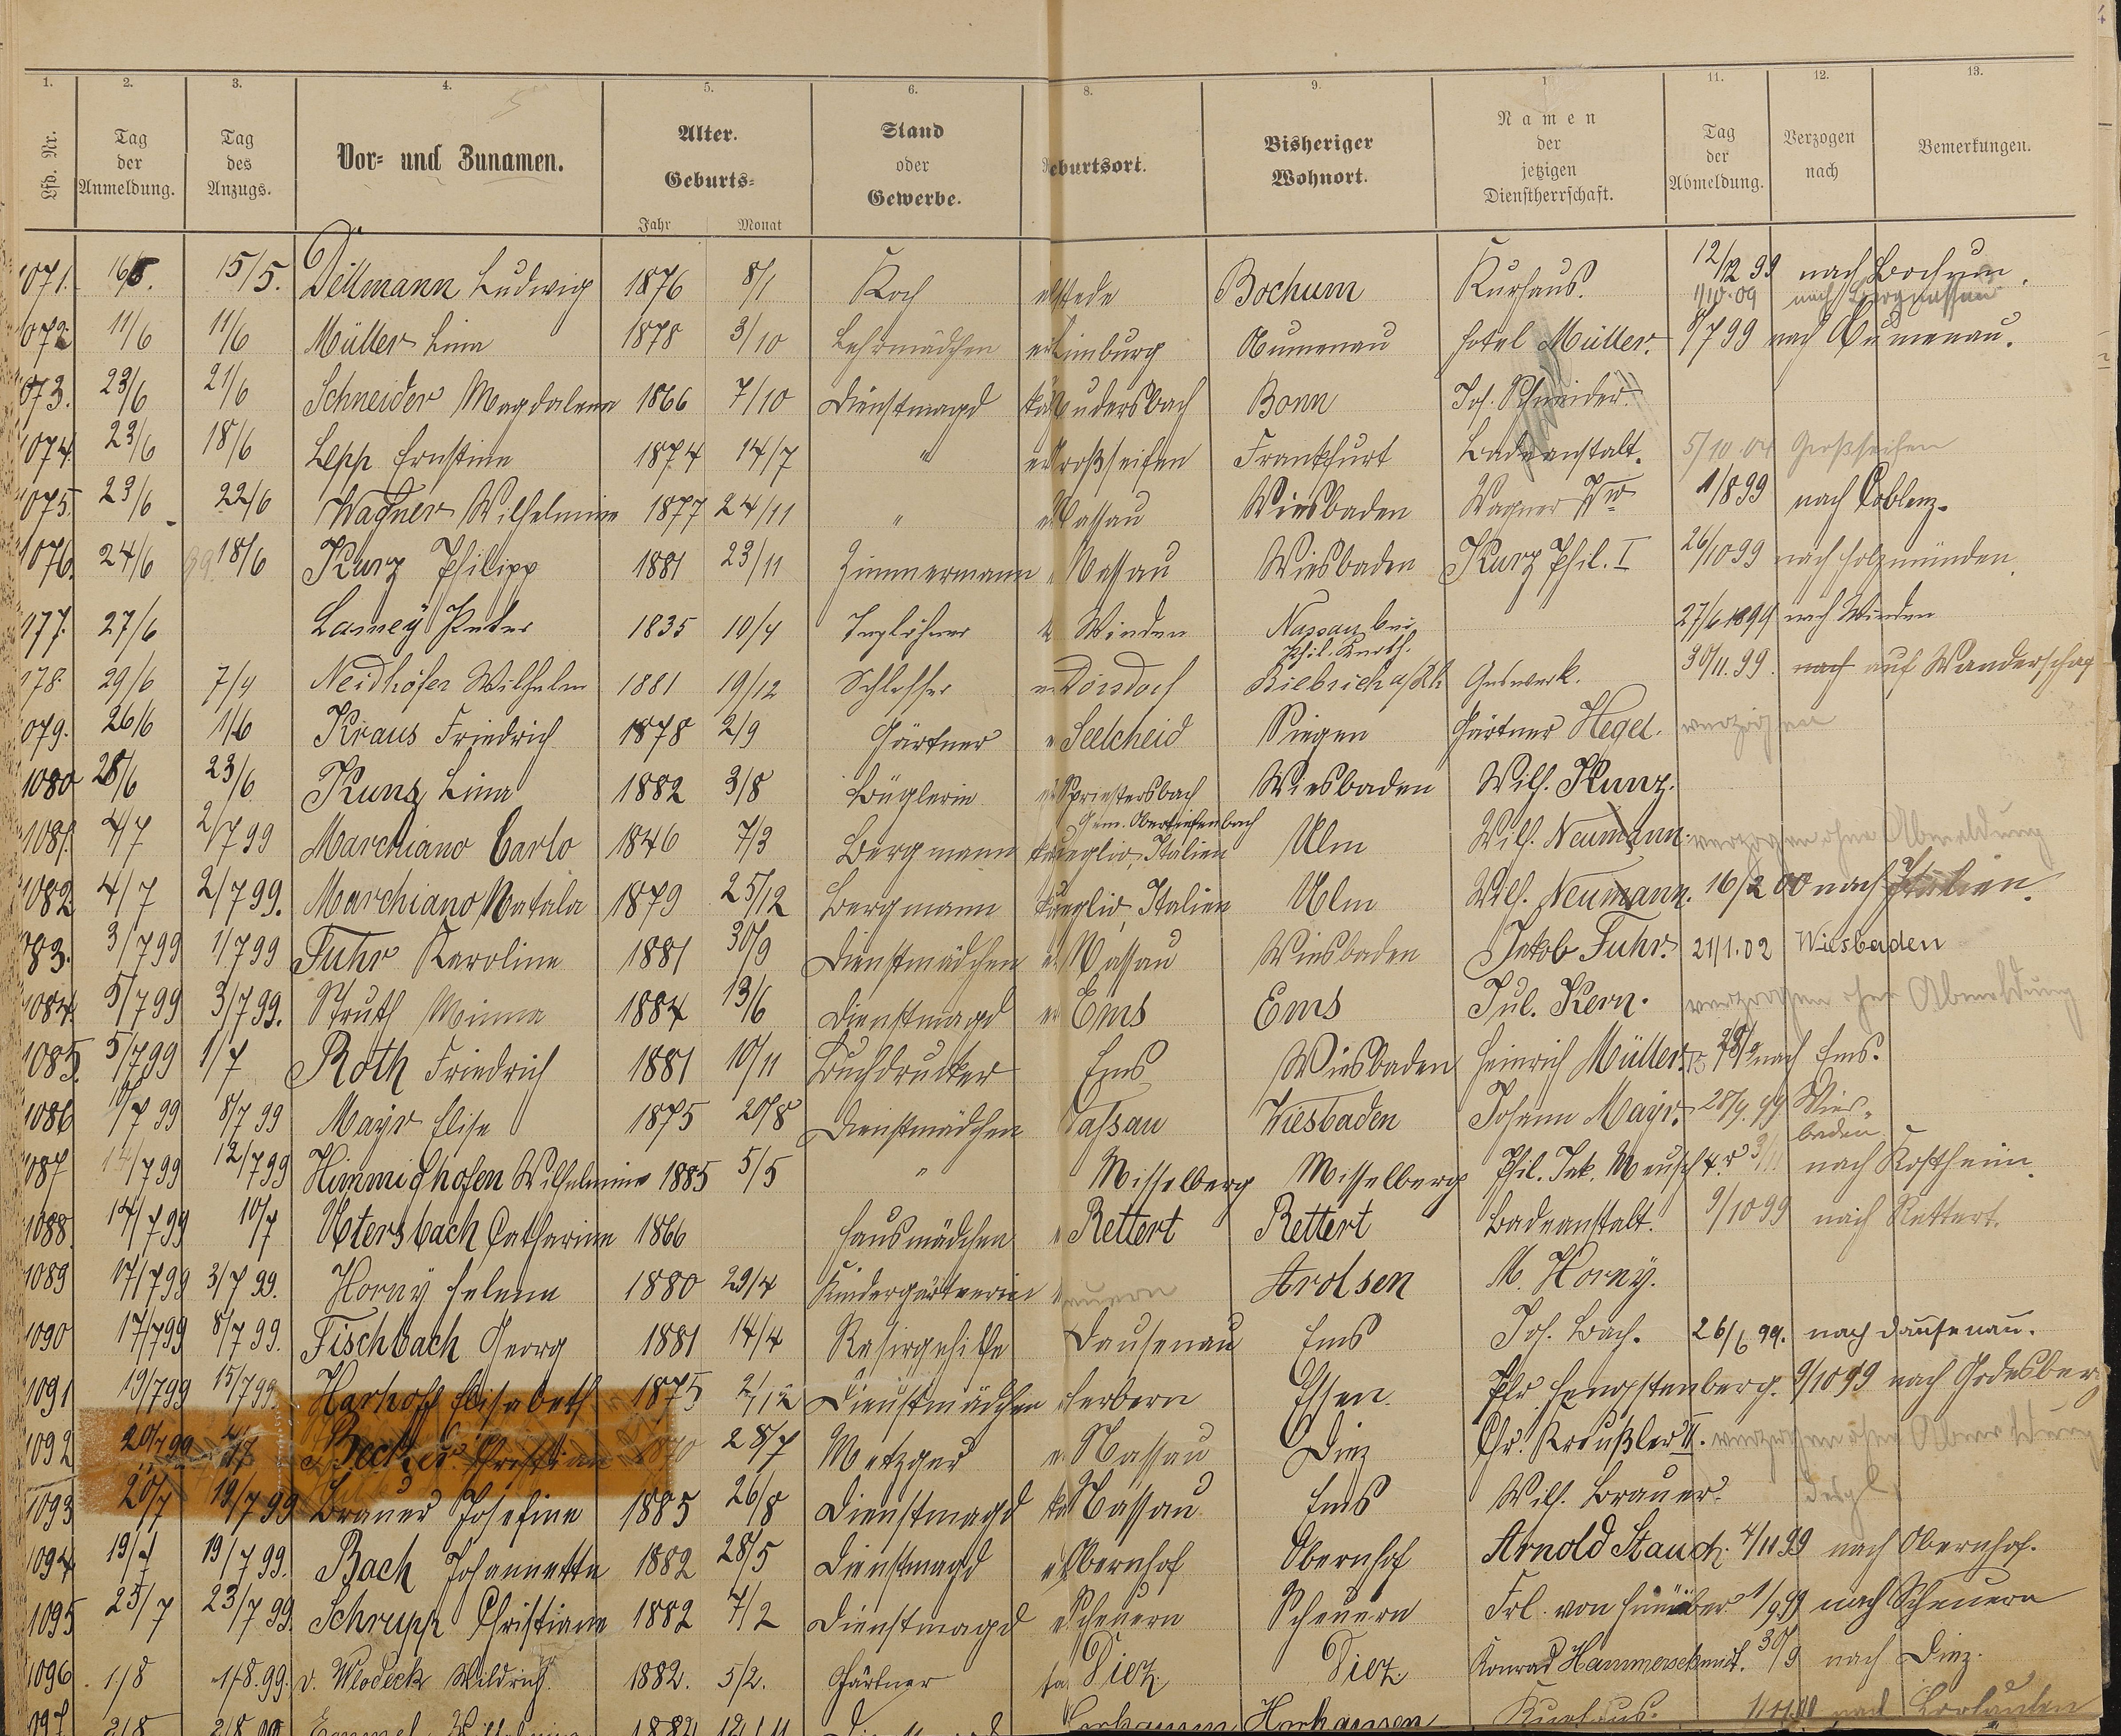 1. 2. 3. 4. 5. 6. 8. 9. 11. 12. 13.
Lfd. Nr. Tag der Anmeldung. Tag des Anzugs. Vor- und Zunamen. Alter. Geburts- Jahr Monat Stand oder Gewerbe. eburtsort. Bisheriger Wohnort. Namen der jetzigen Dienstherrschaft. Tag der Abmeldung. Verzogen nach Bemerkungen.
071. 15/5. Dillmann Ludwig 1876 8/1 Koch Bochum Kurhaus. 12/12 99 nach Bochum.
1/10.09 nach Bergnassau
072. 11/6 11/6 Müller Lina 1878 3/10 Lehrmädchen Limburg Aumenau Hotel Müller. 9/7 99 nach Aumenau.
073. 23/6 21/6 Schneider Magdalena 1866 7/10 Dienstmagd Bonn Joh. Schneider
1074. 23/6 18/6 Lepp Ernstine 1874 14/7 " Großseifen Frankfurt Badeanstalt. 5/10.04 Großseifen
1075. 23/6 22/6 Wagner Wilhelmine 1877 24/11 " Nassau Wiesbaden Wagner Ww 1/8 99 nach Coblenz.
1076. 24/6 18/6 Kurz Philipp 1881 23/11 Zimmermann Nassau Wiesbaden Kurz Phil. I 26/10 99 nach Holzmünden.
177. 27/6 Lamey Peter 1835 10/4 Taglöhner Winden Nassau bei 27/6 1899 nach Winden
Phil. Knoth.
178. 29/6 7/4 Neidhöfer Wilhelm 1881 19/12 Schlosser Dörsdorf Biebrich a/Rh Gaswerk. 30/11.99. nach auf Wanderschaf
079. 26/6 1/6 Kraus Friedrich 1878 2/9 Gärtner Seelcheid Siegen Gärtner Hegel. verzogen
1080 28/6 23/6 Kunz Lina 1882 3/8 Büglerin Spriestersbach Wiesbaden Wilh. Kunz.
Gem. Obertiefenbach
1081. 4/7 2/7 99 Marchiano Carlo 1846 7/3 Bergmann Italien Ulm Wilh. Neumann. verzogen ohne Abmeldung
1082. 4/7 2/7 99. Marchiano Natala 1879 25/12 Bergmann Italien Ulm Wilh. Neumann. 16/2 00 nach Italien.
83. 3/7 99 1/7 99 Fuhr Karoline 1881 30/9 Dienstmädchen Nassau Wiesbaden Jakob Fuhr. 21/1.02 Wiesbaden
1084. 5/7 99 3/7 99. Struth Minna 1884 13/6 Dienstmagd Ems Ems Jul. Kern. verzogen ohne Abmeldung
1085. 5/7 99 1/7 Roth Friedrich 1881 10/11 Buchdrucker Ems Wiesbaden Heinrich Müller nach Ems.
1086 10/7 99 8/7 99 Mayr Elise 1875 20/8 Dienstmädchen assau Wiesbaden Johann Mayr. 28/9.99 Wies-
baden
087 14/7 99 12/7 99 Himmighofen Wilhelmine 1885 5/5 " Misselberg Misselberg Phil. Jak. Meusch nach Kostheim.
1088. 14/7 99 10/7 Metersbach Catharine 1866 Hausmädchen Rettert Rettert Badeanstalt. 9/10 99 nach Rettert.
1089 17/7 99 3/7 99. Horny Helene 1880 29/4 Kindergärtnerin Arolsen M. Horny.
1090 17/7 99 8/7 99. Fischbach Georg 1881 14/4 Rasirgehilfe Dausenau Ems Joh. Bach. nach Dausenau.
1091 19/7 99 15/7 99. Harhoff Elisabeth 1875 2/12 Dienstmädchen Herbern Essen. Pfr. Hengstenberg. 9/10 99 nach Godesber
1092 20/7 99 Becker Christian 1870 28/7 Metzger Nassau Diez Chr. Kreußler II. verzogen ohne Abmeldung
1093 20/7 19/7 99 Brauer Josefine 1885 26/8 Dienstmagd Nassau Ems Wilh. Brauer. desgl.
1094 19/7 19/7 99. Bach Johannette 1882 28/5 Dienstmagd Obernhof Obernhof Arnold Stauch. 4/11 99 nach Obernhof.
1095 25/7 23/7 99. Schrupp Christiane 1882 7/2 Dienstmagd Scheuern Scheuern Frl. von 1/9 99 nach Scheuern
1096. 1/8 1/8.99. v. Wlodeck Wildrich 1882. 5/2. Gärtner Diez Diez Konrad Hammerschmidt. 30/9 nach Diez.
097 2/8 2/8 99 Wilhelmine 1882 Horhausen Kurhaus. nach